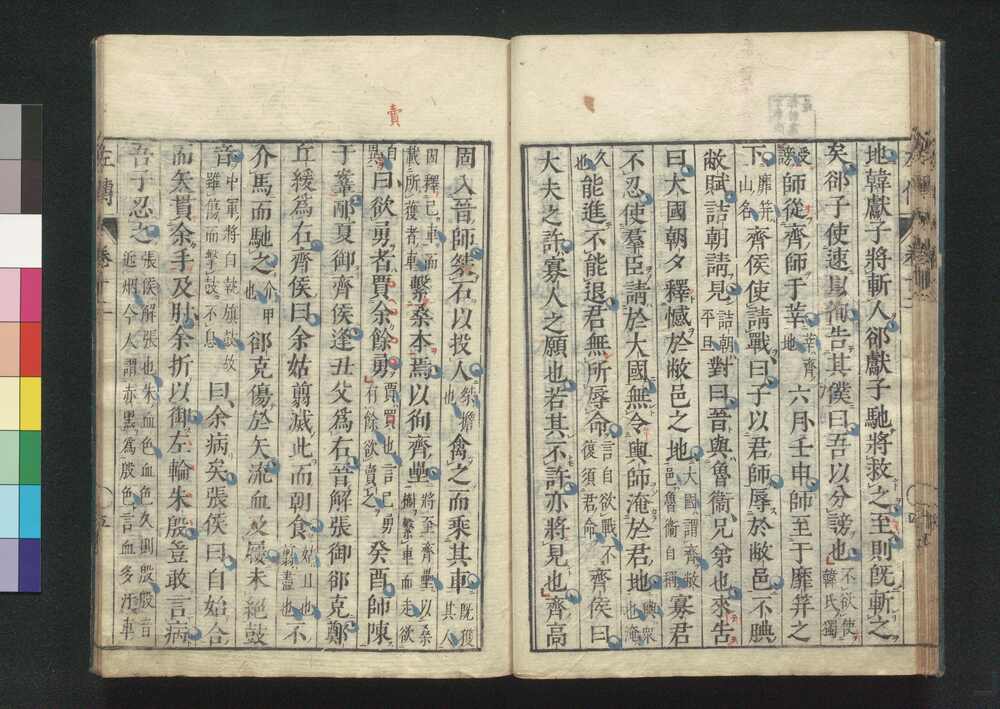 地韓獻子將斬人郤獻子馳將救之至則既斬之
矣郤子使速以徇告其僕曰吾以分謗也不欲使韓氏獨
受謗師從齊師于莘莘齊地六月壬申師至于靡笄之
下靡笄山名齊侯使請戰曰子以君師辱於敝邑不腆
敝賦詰朝請見詰朝平旦對曰晉與魯衞兄弟也來告
曰大國朝夕釋憾於敝邑之地大國謂齊敝邑魯衞自稱寡君
不忍使羣臣請於大國無令輿師淹於君地輿衆也淹
久也能進不能退君無所辱命言自欲戰不復須君命齊侯曰
大夫之許寡人之願也若其不許亦將見也齊高
固入晉師桀石以投人桀擔也禽之而乘其車既獲其人
因釋己車而載所獲者車繫桑本焉以徇齊壘將至齊壘以桑樹繫車而走欲
自異曰欲勇者賈余餘勇賈買也言己勇有餘欲賣之癸酉師陳
于鞌邴夏御齊侯逢丑父爲右晉解張御郤克鄭
丘緩爲右齊侯曰余姑翦滅此而朝食姑且也翦盡也不
介馬而馳之介甲也郤克傷於矢流血及屨未絶鼓
音中軍將自執旗鼓故雖傷而擊鼓不息曰余病矣張侯曰自始合
而矢貫余手及肘余折以御左輪朱殷豈敢言病
吾子忍之張侯解張也朱血色血色久則殷殷音近烟今人謂赤黒爲殷色言血多汙車
左傳
卷十二
五
賣